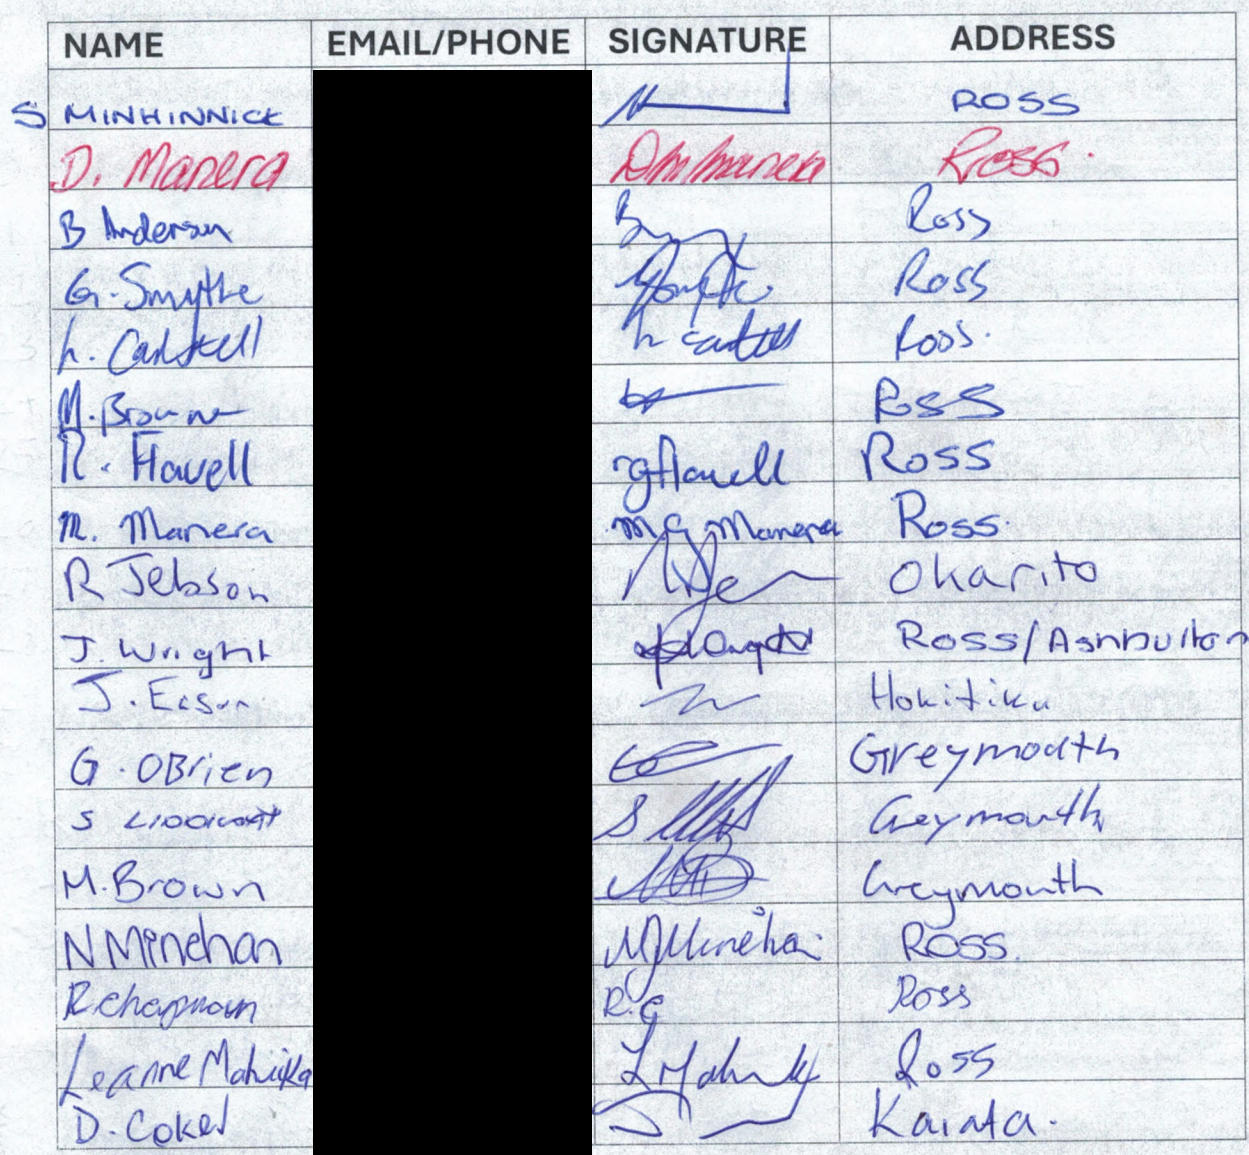 NAME EMAIL/PHONE SIGNATURE ADDRESS
S MINHINNICK ROSS
D. Manera Ross.
B Anderson Ross
G. Smythe Ross
L. Ross.
M. Brown Ross
R. Havell rghavell Ross
M. Manera M G Manera Ross.
R Jebson Okarito
J. Wright Ross/Ashburton
J. Eason Hokitika
G. OBrien Greymouth
S Greymouth
M. Brown Greymouth
N Minehan NJMinehan Ross.
R. Chapman R.C Ross
Leanne Mahuika L Mahuika Ross
D. Coker Kaiata.